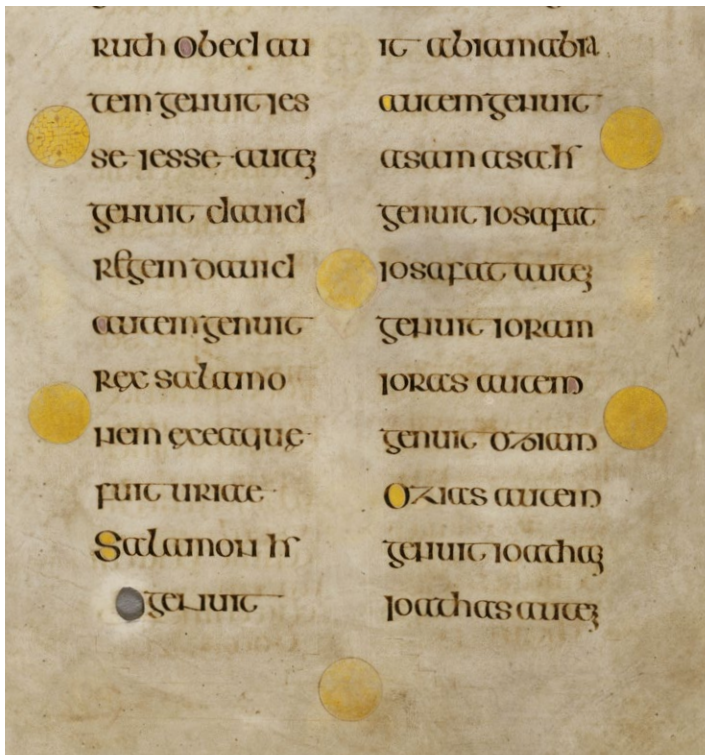 ruth obed au
tem genuit ies
se iesse autē
genuit dauid
regem dauid
autem genuit
rex salamo
nem ex ea que
fuit uriae
Salamon h̅
genuit
it abiam abia
autem genuit
asam asa h̅
genuit iosafat
iosafat autē
genuit ioram
ioras autem
genuit oziam
Ozias autem
genuit ioathā
ioathas autē